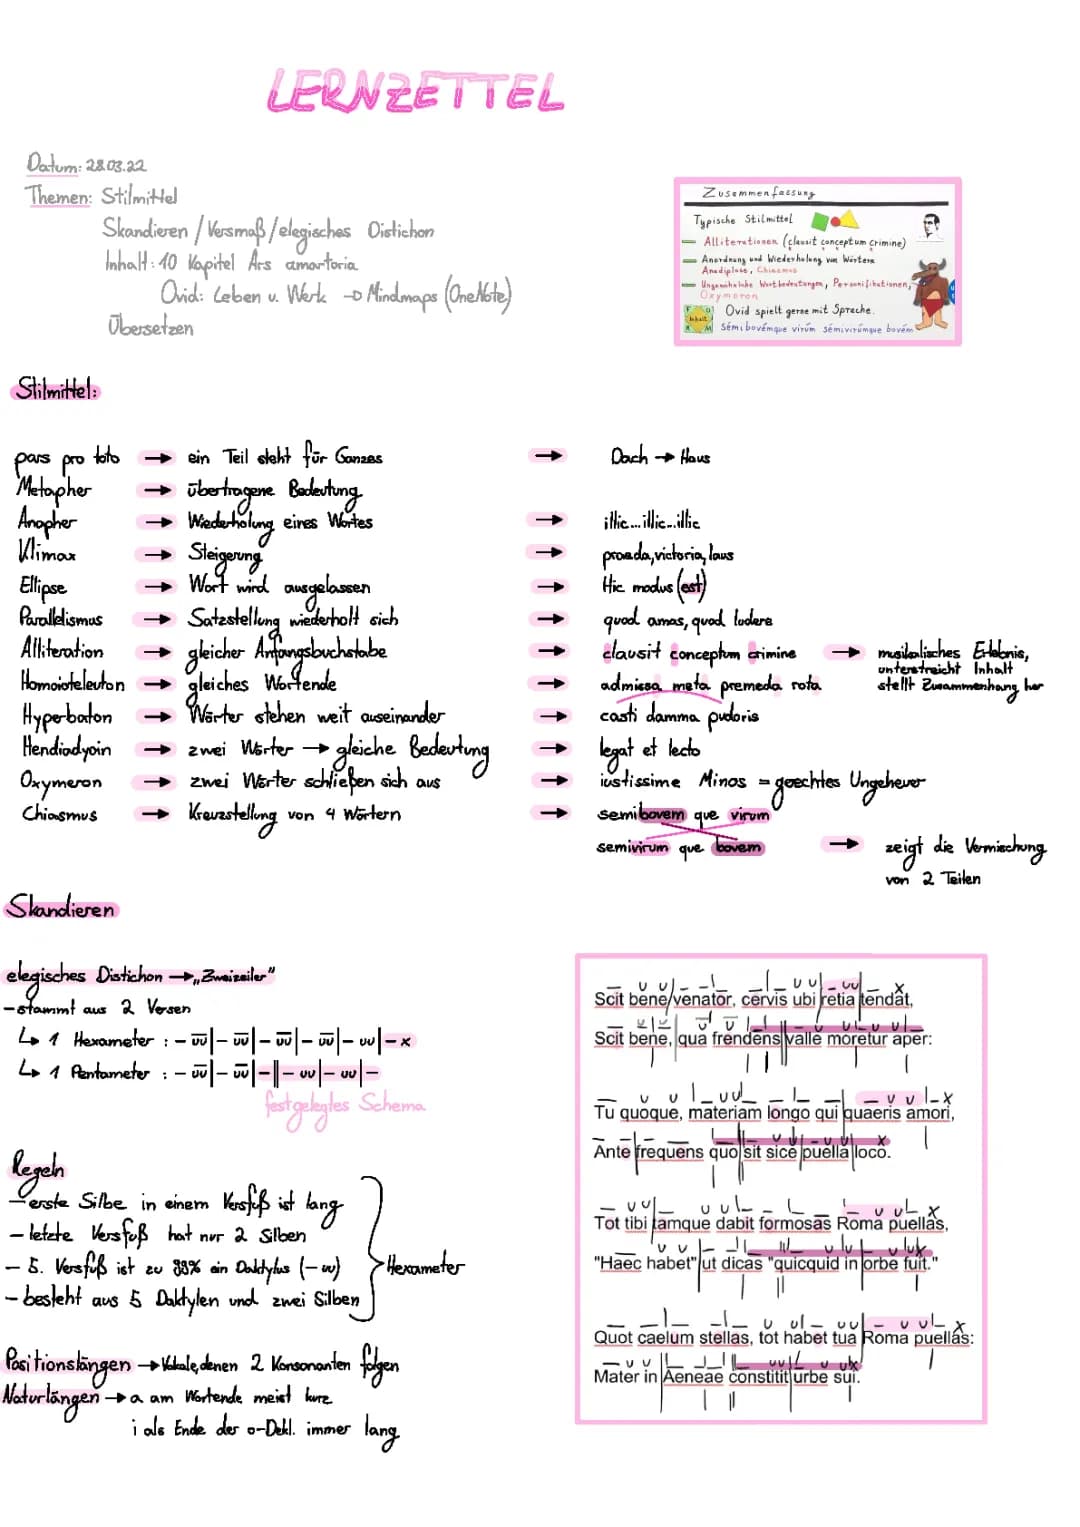 LERNZETTEL
Datum: 28.03.22
Themen: Stilmittel
Skandieren / Versmaß / elegisches Distichon
Inhalt: 10 Kapitel Ars amartoria
Ovid: Leben u. Werk → Mindmaps (OneNote)
Übersetzen
Zusammenfassung
Typische Stilmittel
Alliterationen (clausit conceptum crimine)
Anordnung und Wiederholung von Wörtern
Anadiplose, Chiasmus
Ungewöhnliche Wortbedeutungen, Personifikationen,
Oxymoron
Inhalt
Ovid spielt gerne mit Sprache.
Sémibovémque virúm sémivirúmque bovém
Stilmittel:
pars pro toto → ein Teil steht für Ganzes → Dach → Haus
Metapher → übertragene Bedeutung
Anapher → Wiederholung eines Wortes → illic...illic...illic
Klimax → Steigerung → praeda, victoria, laus
Ellipse → Wort wird ausgelassen → Hic modus (est)
Parallelismus → Satzstellung wiederholt sich → quod amas, quod ludere
Alliteration → gleicher Anfangsbuchstabe → clausit conceptum crimine → musikalisches Erlebnis,
unterstreicht Inhalt
Homoioteleuton → gleiches Wortende → admissa meta premeda rota
stellt Zusammenhang her
Hyperbaton → Wörter stehen weit auseinander → casti damma pudoris
Hendiadyoin → zwei Wörter → gleiche Bedeutung → legat et lecto
Oxymeron → zwei Wörter schließen sich aus → iustissime Minos = gerechtes Ungeheuer
Chiasmus → Kreuzstellung von 4 Wörtern → semibovem que virum
semivirum que bovem → zeigt die Vermischung
von 2 Teilen
Skandieren
elegisches Distichon → „Zweizeiler"
- stammt aus 2 Versen
↳ 1 Hexameter : – ῡῡ | – ῡῡ | – ῡῡ | – ῡῡ | – υυ | – x
↳ 1 Pentameter : – ῡῡ | – ῡῡ | – || – υυ | – υυ | –
festgelegtes Schema
Regeln
- erste Silbe in einem Versfuß ist lang
- letzte Versfuß hat nur 2 Silben
- 5. Versfuß ist zu 99% ein Daktylus (– υυ)
- besteht aus 5 Daktylen und zwei Silben
Hexameter
Positionslängen → Vokale, denen 2 Konsonanten folgen
Naturlängen → a am Wortende meist kurz
i als Ende der o-Dekl. immer lang
Scit bene/venator, cervis ubi retia tendat,
Scit bene, qua frendens valle moretur aper:
Tu quoque, materiam longo qui quaeris amori,
Ante frequens quo sit sice puella loco.
Tot tibi tamque dabit formosas Roma puellas,
"Haec habet" ut dicas "quicquid in orbe fuit."
Quot caelum stellas, tot habet tua Roma puellas:
Mater in Aeneae constitit urbe sui.